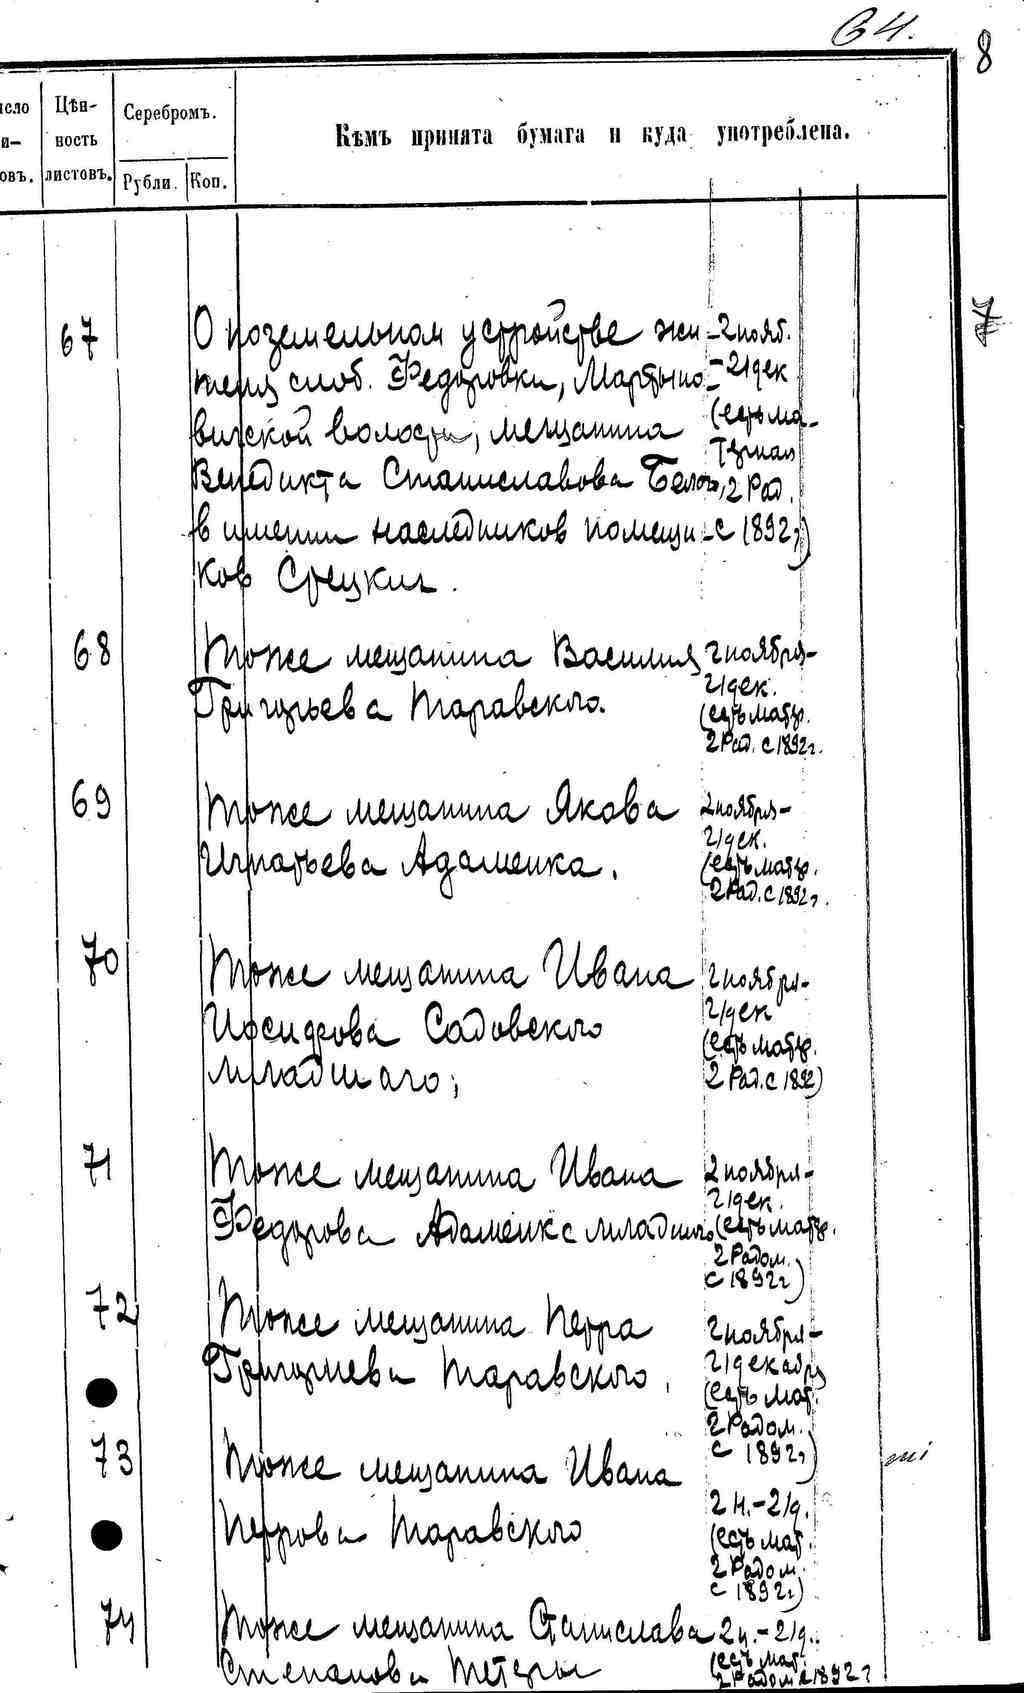 64.
8
исло
и-
овъ.
Цѣн-
ность
листовъ.
Серебромъ.
Рубли. Коп.
Кѣмъ принята бумага и куда употреблена.
7
67
О поземельном устройстве жи
теля слоб. Федоровки, Мартыно
вичской волости, мещанина
Венедикта Станиславова
в имении наследников помещи
ков Срецких.
- 2 нояб.
- 21 дек
(есть ма-
териал
2 Рад.
с 1892 г)
68
Тоже мещанина Василия
Григорьева Таравского.
2 ноября-
21 дек.
(есть матер.
2 Рад. с 1892 г.
69
Тоже мещанина Якова
Игнатьева Адаменка.
2 ноября-
21 дек.
(есть матер.
2 Рад. с 1892 г.
70
Тоже мещанина Ивана
Иосифова Садовского
младшаго;
2 ноября-
21 дек
(есть матер.
2 Рад. с 1892)
71
Тоже мещанина Ивана
Федорова Адаменка младшего
2 ноября-
21 дек.
(есть матер.
2 Радом.
с 1892 г)
72
Тоже мещанина Петра
Григориева Таравского,
2 ноября-
21 декабря
(есть мат.
2 Радом.
с 1892 г)
73
Тоже мещанина Ивана
Петрова Таравского
2 н.-21 д.
(есть мат.
2 Радом.
с 1892 г)
74
Тоже мещанина Станислава
Степанова Тетеры
2 н.-21 д.
(есть мат.
2 Радом с 1892 г